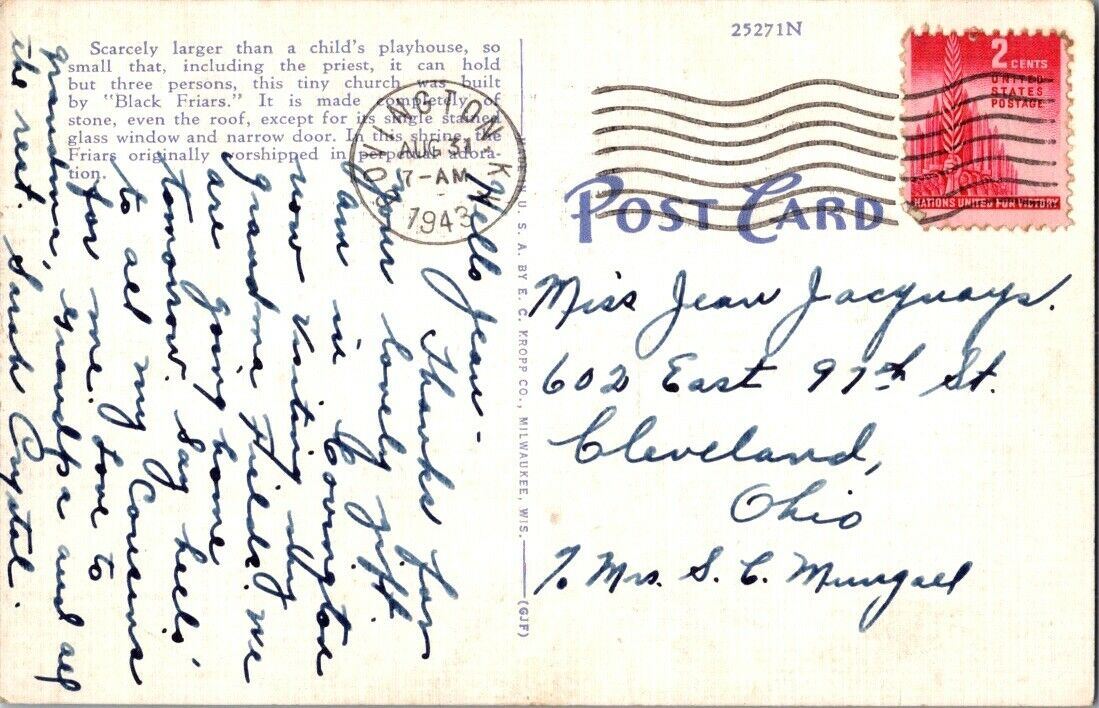 Scarcely larger than a child's playhouse, so
small that, including the priest, it can hold
but three persons, this tiny church was built
by "Black Friars." It is made completely of
stone, even the roof, except for its single stained
glass window and narrow door. In this shrine, the
Friars originally worshipped in perpetual adora-
tion.
25271N
2 CENTS
UNITED
STATES
POSTAGE
NATIONS UNITED FOR VICTORY
COVINGTON KY
AUG 31
7-AM
1943
POST CARD
MADE IN U. S. A. BY E. C. KROPP CO., MILWAUKEE, WIS.
(GJF)
Hello Jean-
Thanks for
your lovely gift.
I am in Covington
now visiting my
grandma Fields. We
are going home
tomorrow. Say hello
to all my Cousins
for me. Love to
grandma, grandpa and all
the rest. Sarah Crystal.
Miss Jean Jacquays.
602 East 97th St.
Cleveland,
Ohio
Mrs. S. C. Mungall